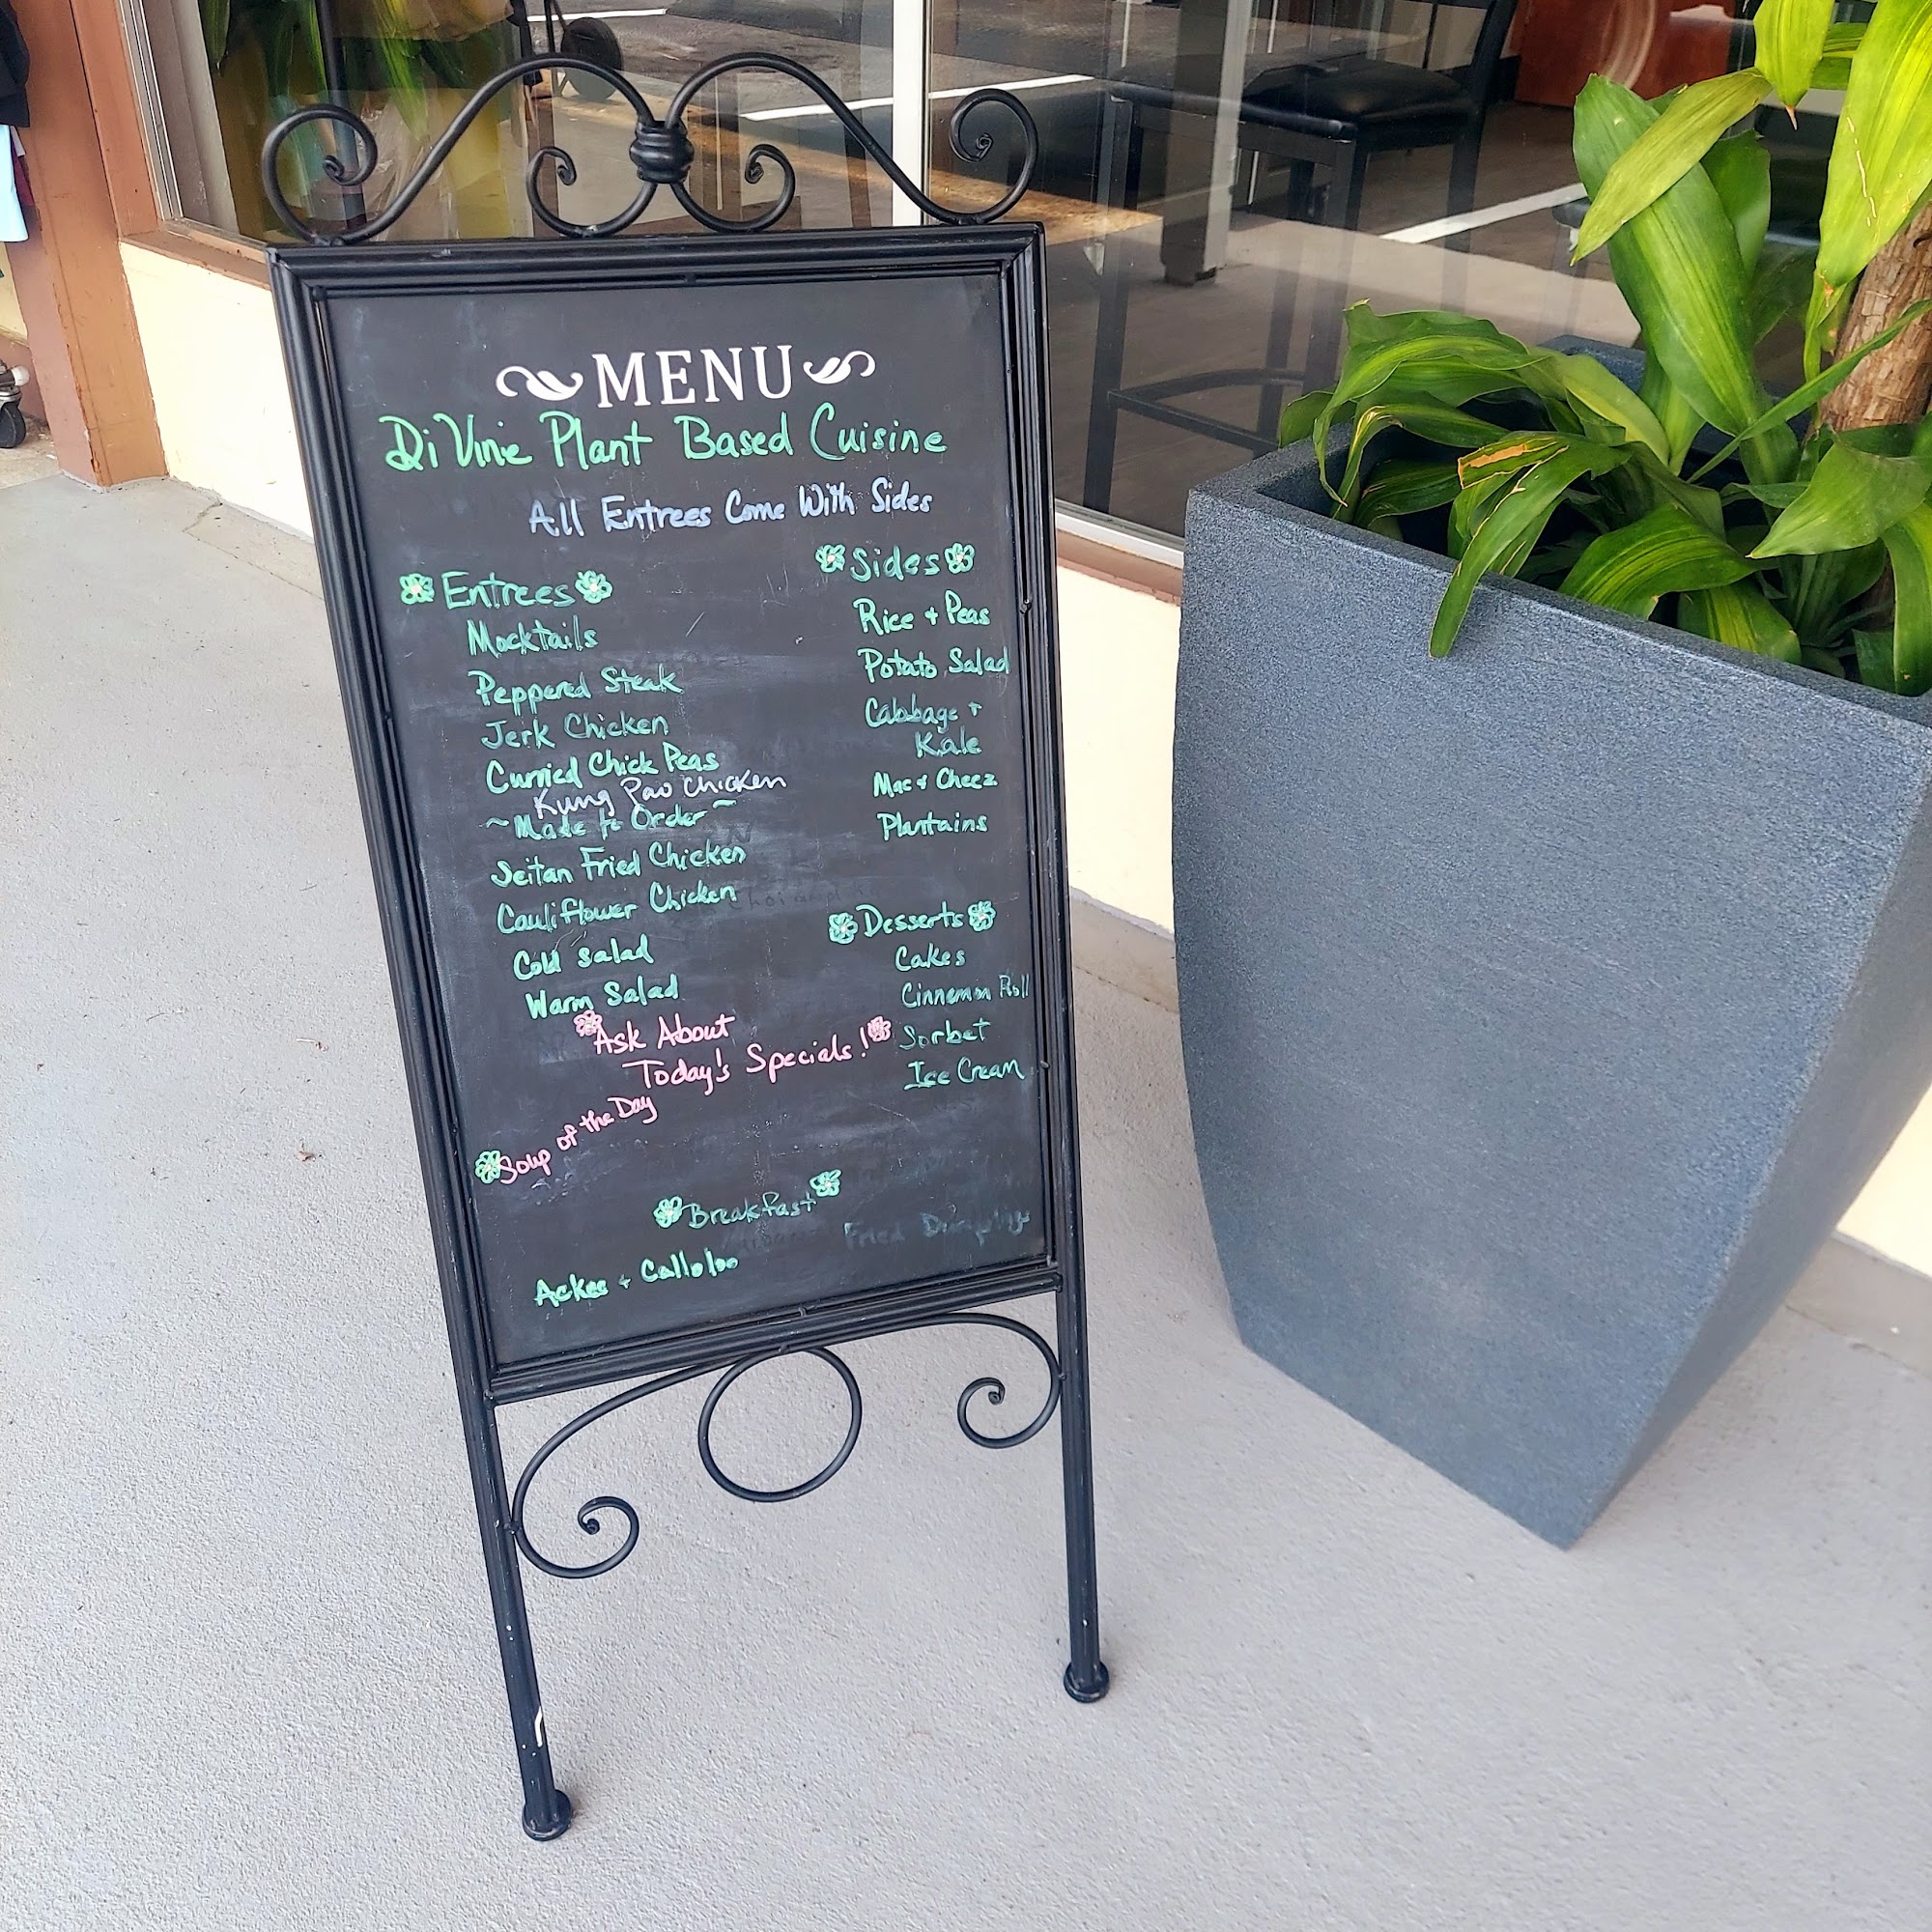 MENU
Di Vine Plant Based Cuisine
All Entrees Come With Sides
Entrees
Mocktails
Peppered Steak
Jerk Chicken
Curried Chick Peas
Kung Pao Chicken
~Made to Order~
Seitan Fried Chicken
Cauliflower Chicken
Cold Salad
Warm Salad
Sides
Rice + Peas
Potato Salad
Cabbage +
Kale
Mac & Cheez
Plantains
Desserts
Cakes
Cinnemon Roll
Sorbet
Ice Cream
Ask About
Today's Specials!
Soup of the Day
Breakfast
Fried
Ackee + Calloloo